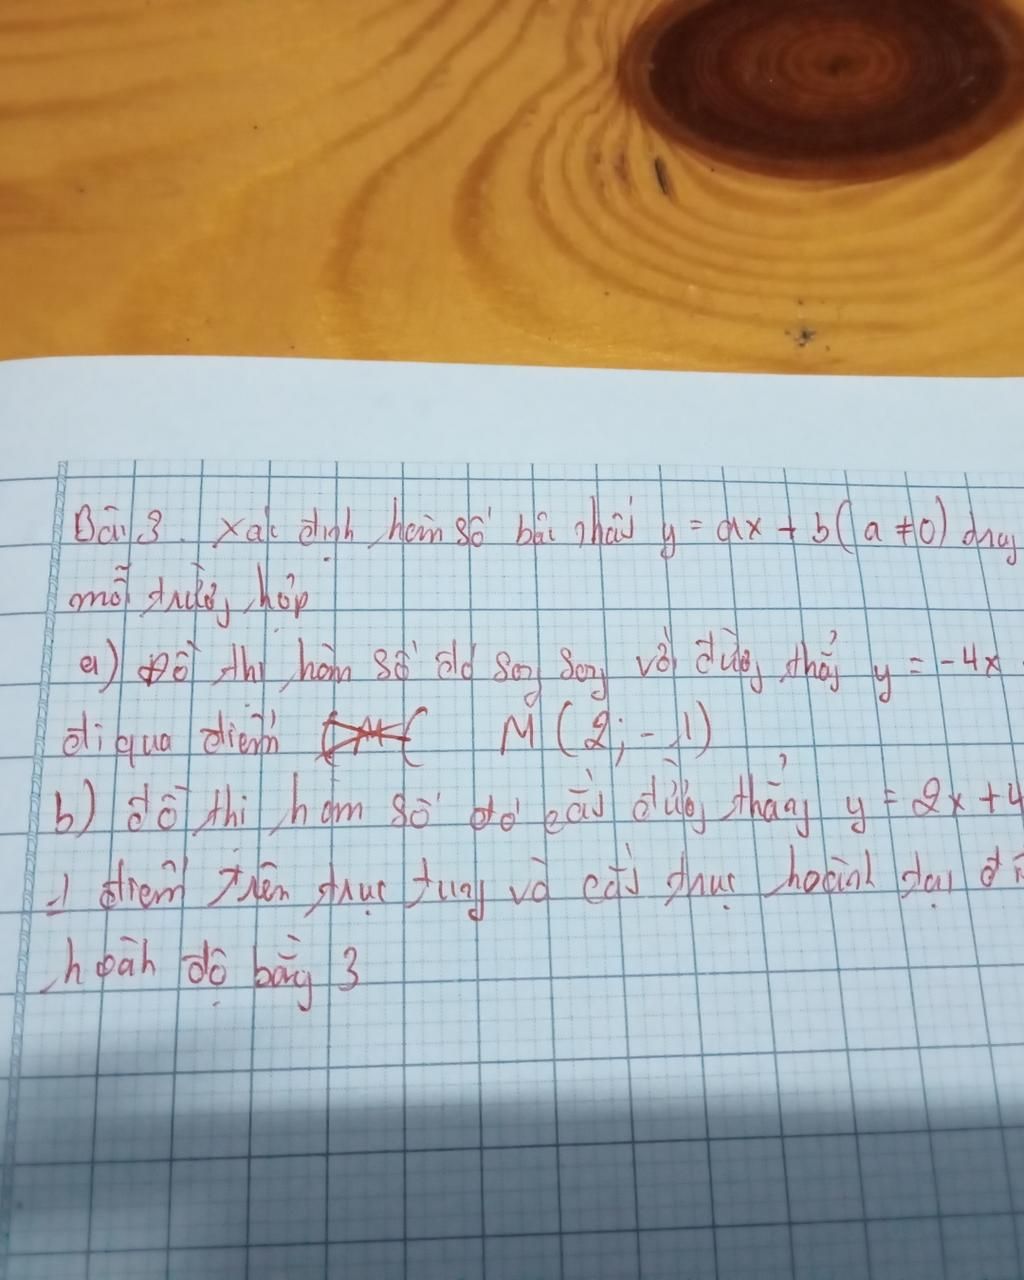 Bài 3. Xác định hàm số bậc nhất y = ax + b (a ≠ 0) trong
mỗi trường hợp
a) Đồ thị hàm số đó song song với đường thẳng y = -4x
đi qua điểm M (2; -1)
b) đồ thị hàm số đó cắt đường thẳng y = 2x + 4
1 điểm trên trục tung và cắt trục hoành tại
hoành độ bằng 3